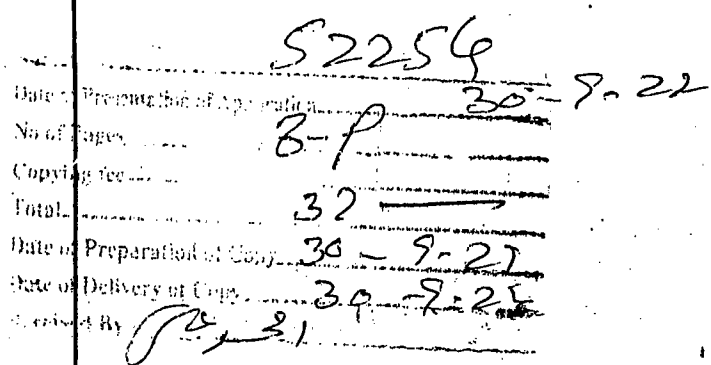 52254
Date of Presentation of Application 30-9-22
No of Pages 3-P
Copying fee
Total 32
Date of Preparation of Copy 30-9-22
Date of Delivery of Copy 30-9-22
By